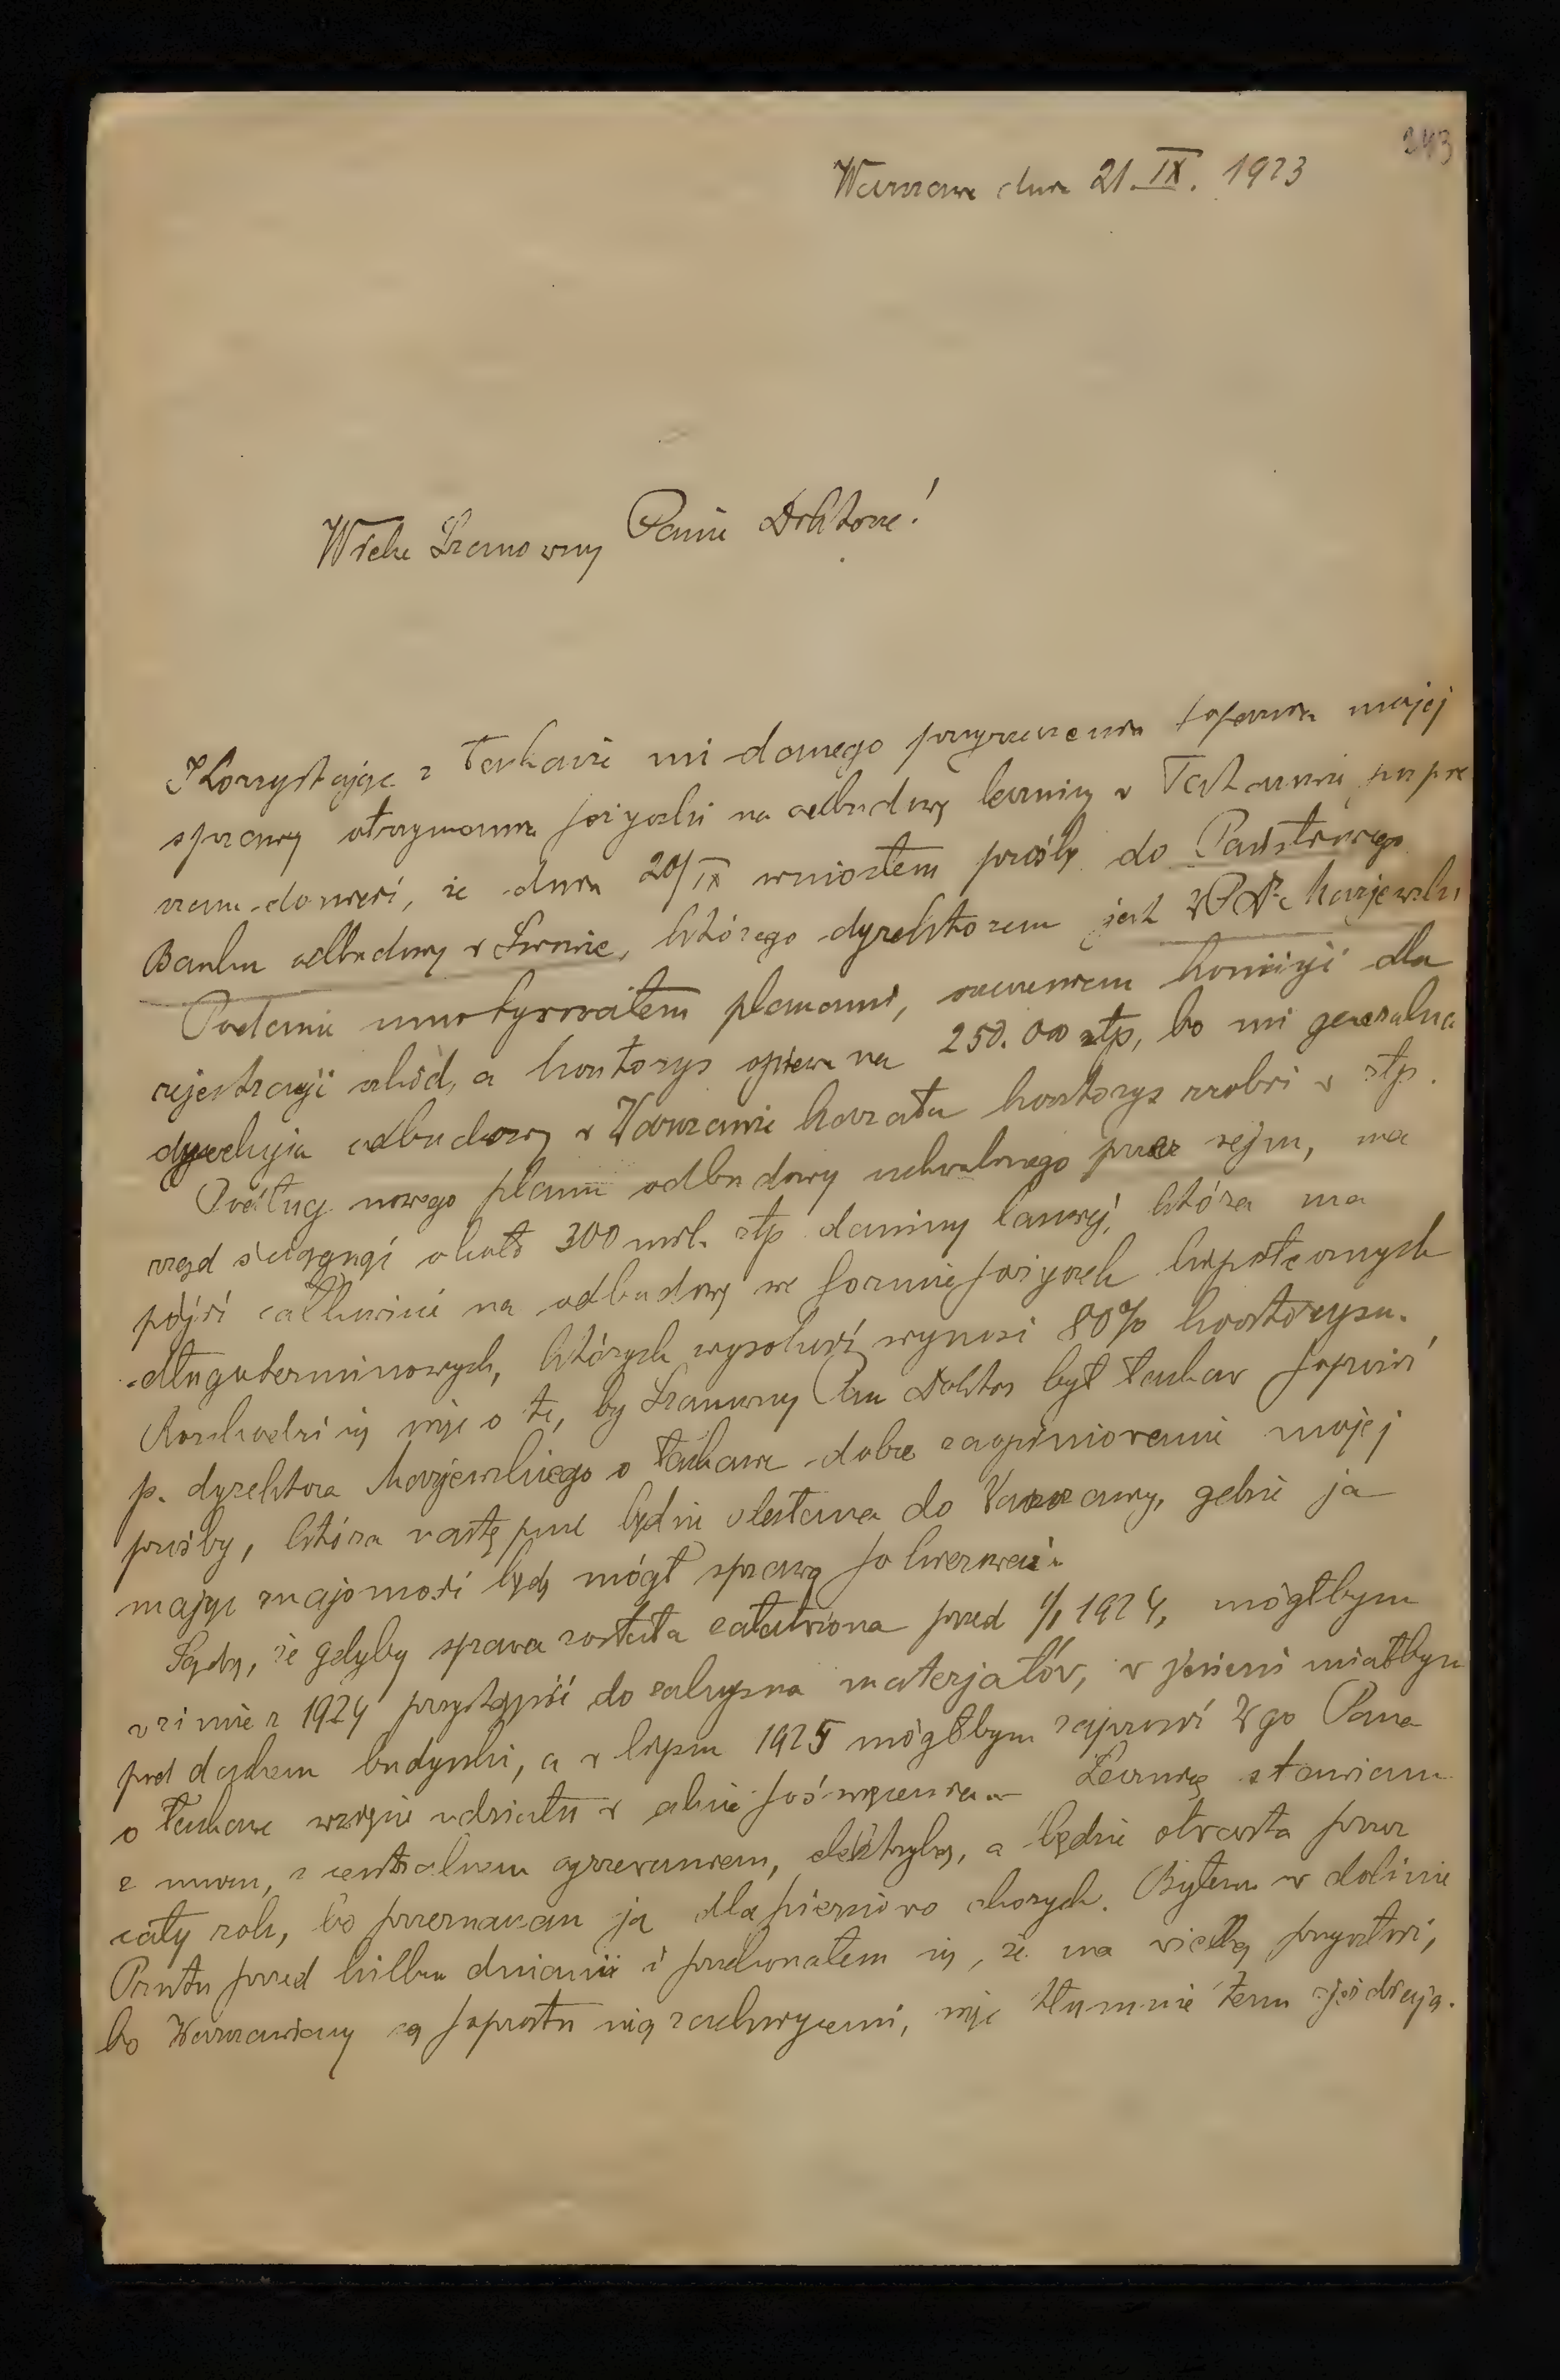 343
Warszawa dnia 21. IX. 1923
Wielce Szanowny Panie Doktorze!
Korzystając z łaskawie mi danego przyrzeczenia poparcia mojej
sprawy otrzymania pożyczki na odbudowę lecznicy w Tatarowie, po
donieść, że dnia 20/IX wniosłem prośbę do Państwowego
Banku odbudowy w Lwowie, którego dyrektorem jest
Podanie umotywowałem planami, orzeczeniem komisyi dla
rejestracyi szkód, a kosztorys opiewa na 250.000 złp, bo mi generalna
dyrekcyja odbudowy w Warszawie kazała kosztorys zrobić w złp.
Podług nowego planu odbudowy uchwalonego przez sejm, ma
rząd ściągnąć około 300 mil. złp daniny lasowej, która ma
pójść całkowicie na odbudowę we formie pożyczek hipotecznych
długoterminowych, których wysokość wynosi 80% kosztorysu.
Rozchodzi się więc o to, by Szanowny Pan Doktor był łaskaw poprosić
p. dyrektora o łaskawe dobre zaopiniowanie mojej
prośby, która następnie będzie odesłana do Warszawy, gdzie ja
mając znajomości będę mógł sprawę
Sądzę, że gdyby sprawa została załatwiona przed 1/I 1924, mógłbym
w zimie z 1924 przystąpić do zakupna materjałów, w jesieni miałbym
pod dachem budynki, a w lipcu 1925 mógłbym zaprosić Wgo Pana
o łaskawe wzięcie udziału w akcie poświęcenia. Lecznicę stawiam
z muru, z centralnem ogrzewaniem, elektryką, a będzie otwarta przez
cały rok, bo przeznaczam ją dla piersiowo chorych. Byłem w dolinie
Prutu przed kilku dniami i przekonałem się, że ma wielką przyszłość,
bo Warszawiacy są poprostu nią zachwyceni, więc tłumnie tam zjeżdżają.